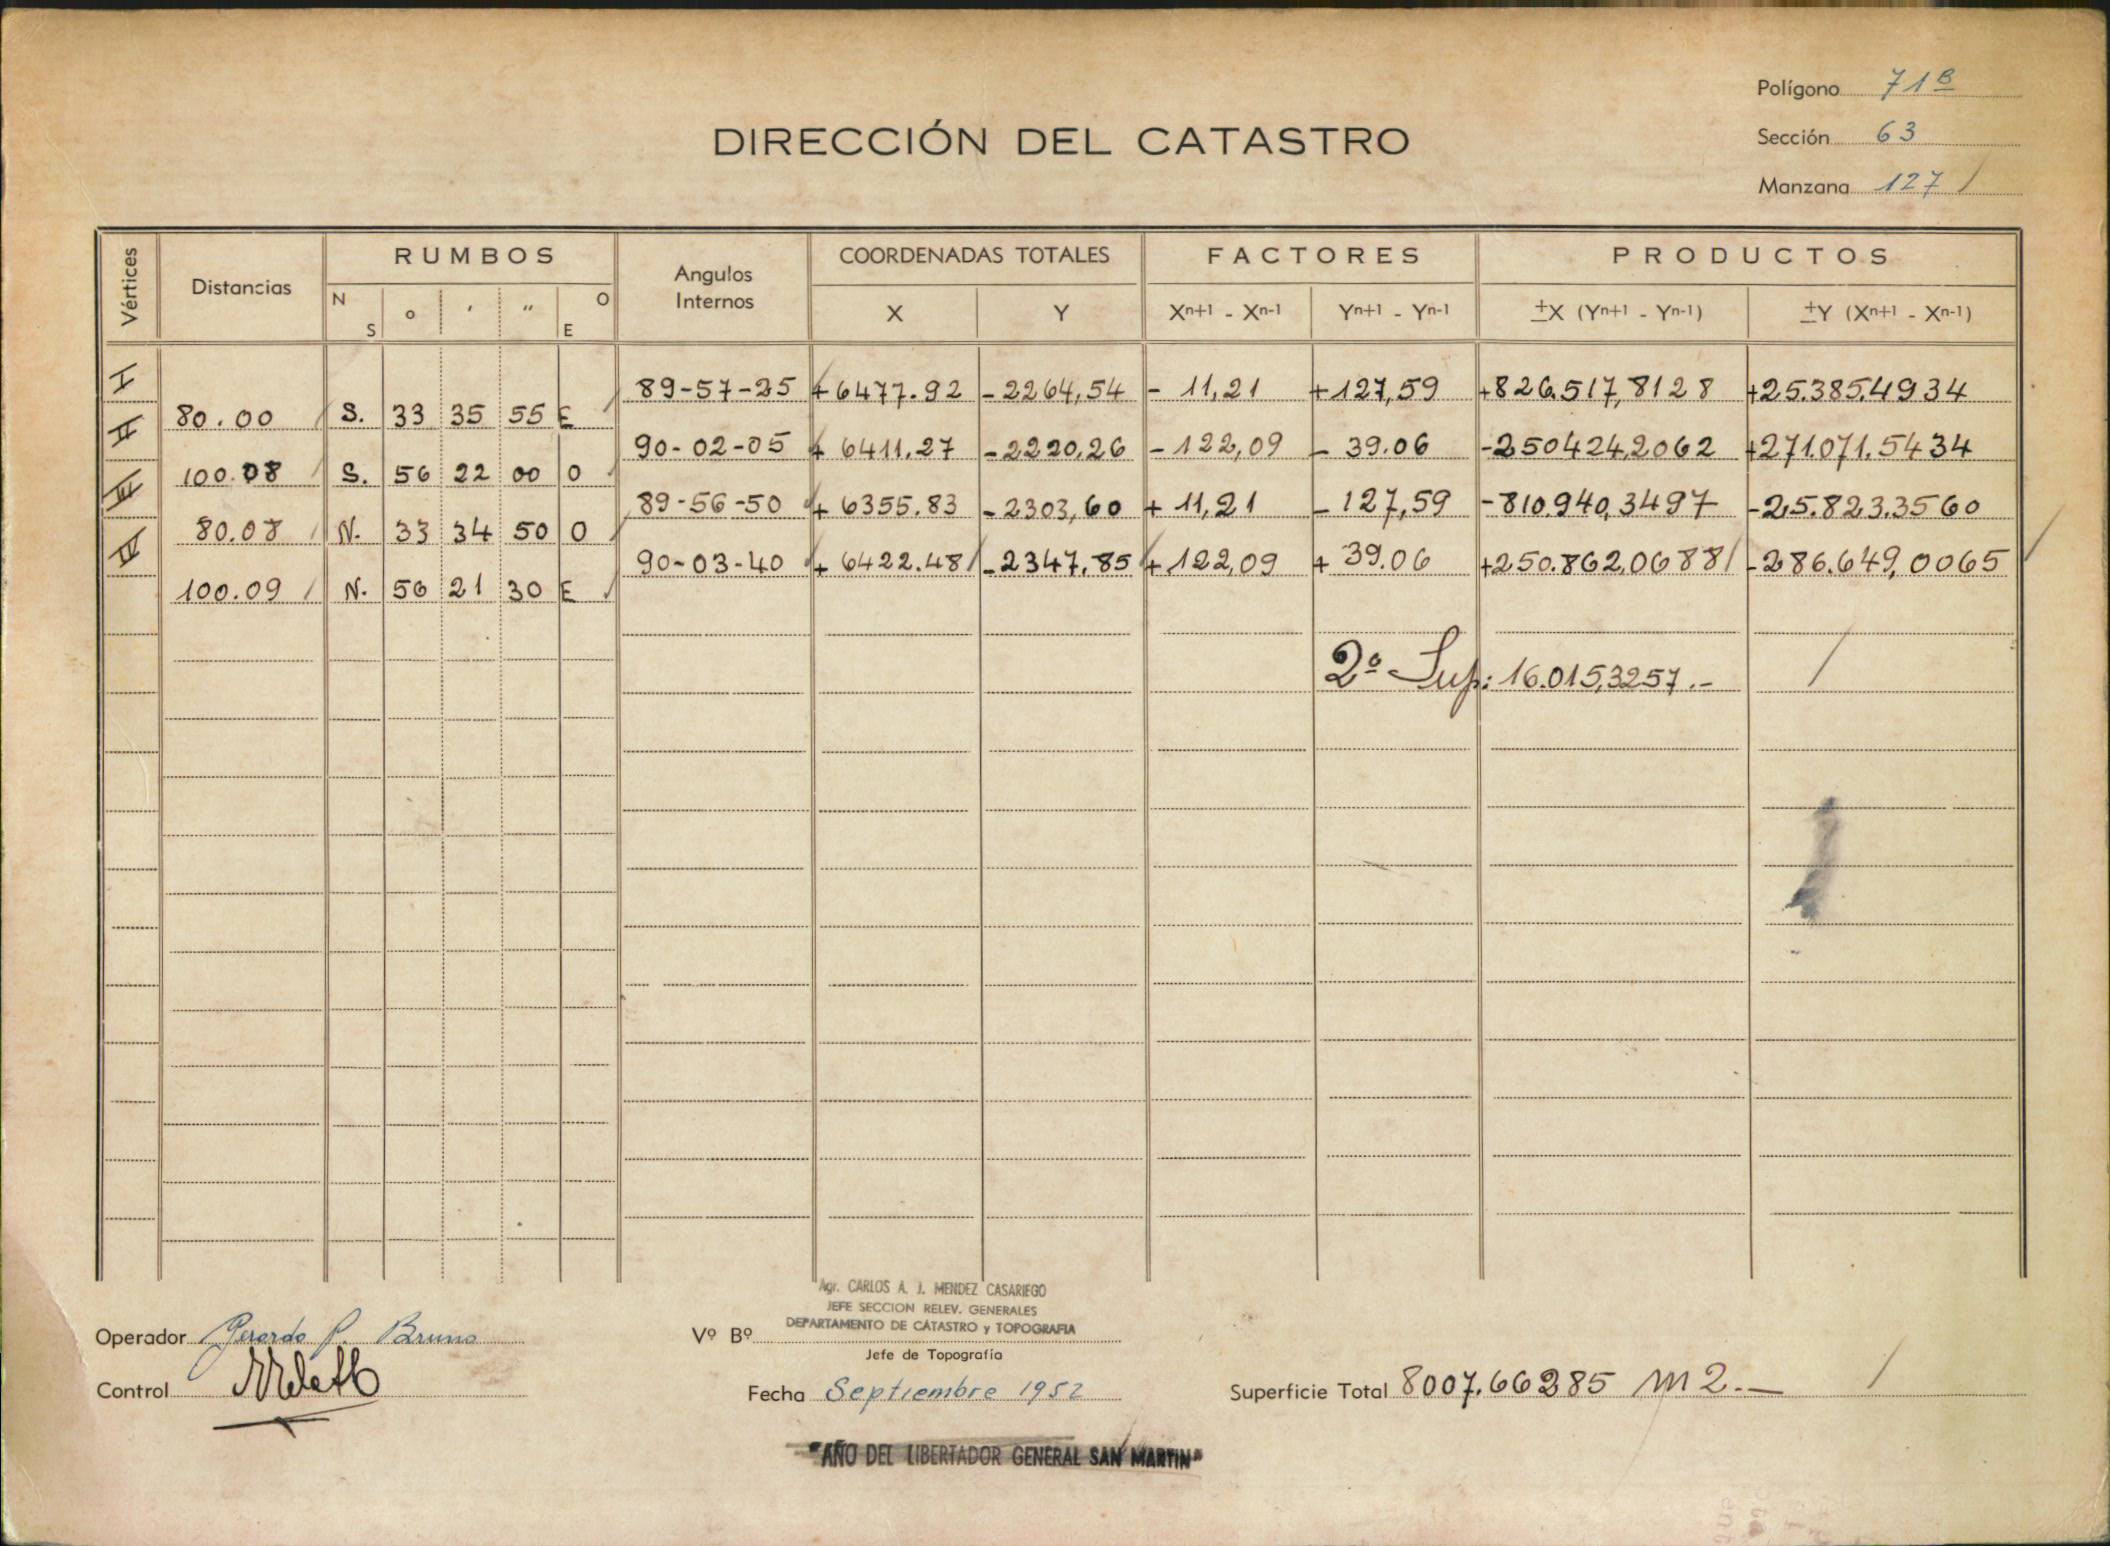 Polígono 71 B
Sección 63
Manzana 127
DIRECCIÓN DEL CATASTRO
Vértices Distancias RUMBOS Angulos Internos COORDENADAS TOTALES FACTORES PRODUCTOS
N S o ' " O E X Y Xn+1 - Xn-1 Yn+1 - Yn-1 ±X (Yn+1 - Yn-1) ±Y (Xn+1 - Xn-1)
I 89-57-25 +6477.92 -2264,54 - 11,21 +127,59 +826.517,8128 +25.385,4934
80.00 S. 33 35 55 E
II 90-02-05 + 6411.27 -2220,26 -122,09 - 39.06 -250424,2062 +271.071.5434
100.08 S. 56 22 00 O
III 89-56-50 + 6355.83 -2303,60 + 11,21 - 127,59 -810.940,3497 -25.823.3560
80.08 N. 33 34 50 O
IV 90-03-40 + 6422.48 -2347,85 +122,09 + 39.06 +250.862,0688 -286.649,0065
100.09 N. 56 21 30 E
2ª Sup: 16.015,3257.-
Agr. CARLOS A. J. MENDEZ CASARIEGO
JEFE SECCION RELEV. GENERALES
DEPARTAMENTO DE CATASTRO y TOPOGRAFIA
Operador Gerardo P. Bruno Vº Bº
Jefe de Topografía
Control Fecha Septiembre 1952 Superficie Total 8007.66285 m2.-
"AÑO DEL LIBERTADOR GENERAL SAN MARTIN"